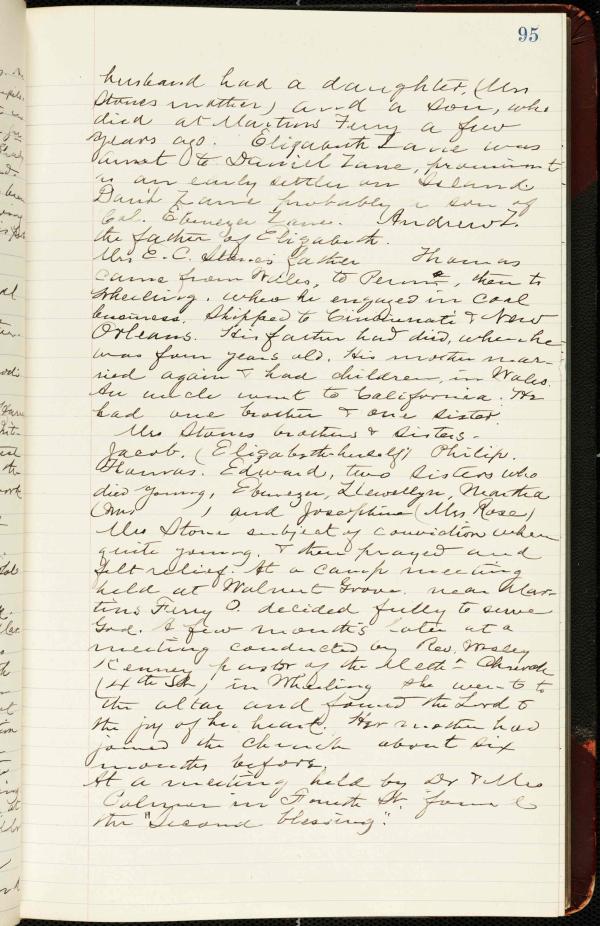 95
husband had a daughter, (Mrs
Stones mother) and a son, who
died at Martins Ferry a few
years ago. Elizabeth Zane was
aunt to Daniel Zane, prominent
as an early settler on Island.
David Zane probably a son of
Col. Ebenezer Zane. Andrew Z.
the father of Elizabeth.
Mrs E. C. Stones father Thomas
came from Wales, to Penna, then to
Wheeling. where he engaged in coal
business. Shipped to Cincinnati & New
Orleans. His father had died, when he
was four years old. His mother mar-
ried again & had children, in Wales.
An uncle went to California. He
had one brother & one sister.
Mrs Stones brothers & sisters.
Jacob. (Elizabeth herself) Philip.
Thomas. Edward, two sisters who
died young, Ebenezer, Llewellyn, Martha
(Mrs ) and Josephine (Mrs Rose)
Mrs Stone subject of conviction when
quite young. & then prayed and
felt relief. At a camp meeting
held at Walnut Grove. near Mar-
tins Ferry O. decided fully to serve
God. A few months later at a
meeting conducted by Rev. Wesley
Kenney pastor of the Meth Church
(4th St.) in Wheeling she went to
the altar and found the Lord to
the joy of her heart. Her mother had
joined the church about six
months before.
At a meeting held by Dr & Mrs
in Fourth St. found
the "second blessing".